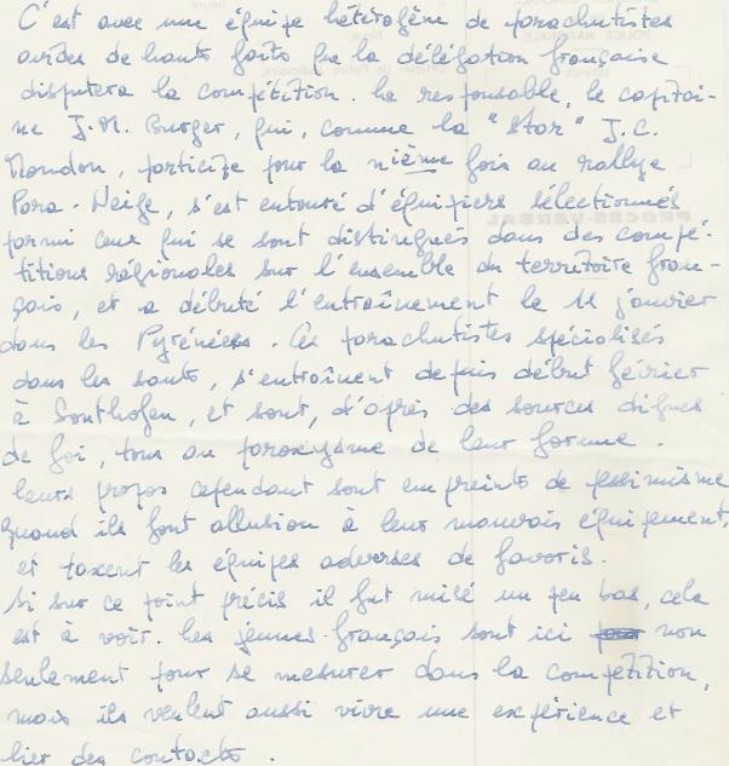 C'est avec une équipe hétérogène de parachutistes
avides de hauts faits que la délégation française
disputera la compétition. Le responsable, le capitai-
ne J.M. Burger, qui, comme la "star" J.C.
Mondon, participe pour la nième fois au rallye
Para-Neige, s'est entouré d'équipiers sélectionnés
parmi ceux qui se sont distingués dans des compé-
titions régionales sur l'ensemble du territoire fran-
çais, et a débuté l'entraînement le 11 janvier
dans les Pyrénées. Ces parachutistes spécialisés
dans les sauts, s'entraînent depuis début février
à Sonthofen, et sont, d'après des sources dignes
de foi, tous au paroxysme de leur forme.
Leurs propos cependant sont empreints de pessimisme
quand ils font allusion à leur mauvais équipement,
et taxent les équipes adverses de favoris.
Si sur ce point précis il fut misé un peu bas, cela
est à voir. Les jeunes français sont ici non
seulement pour se mesurer dans la compétition,
mais ils veulent aussi vivre une expérience et
lier des contacts.
PROCES-VERBAL
POLICE NATIONALE